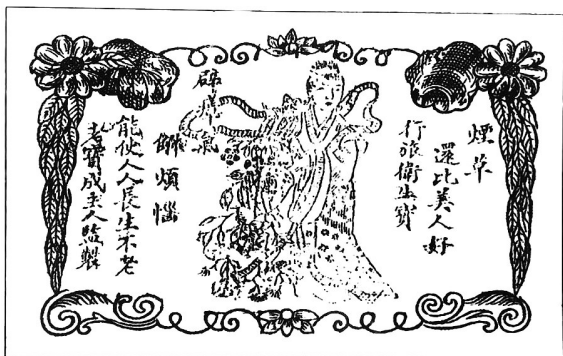 煙草
還比美人好
行旅衛生寶
辟氣
解煩惱
能使人人長生不老
老寶成主人監製